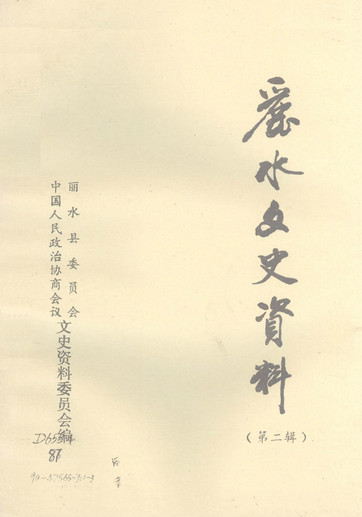 麗水文史資料
（第二辑）
中国人民政治协商会议
丽水县委员会
文史资料委员会编